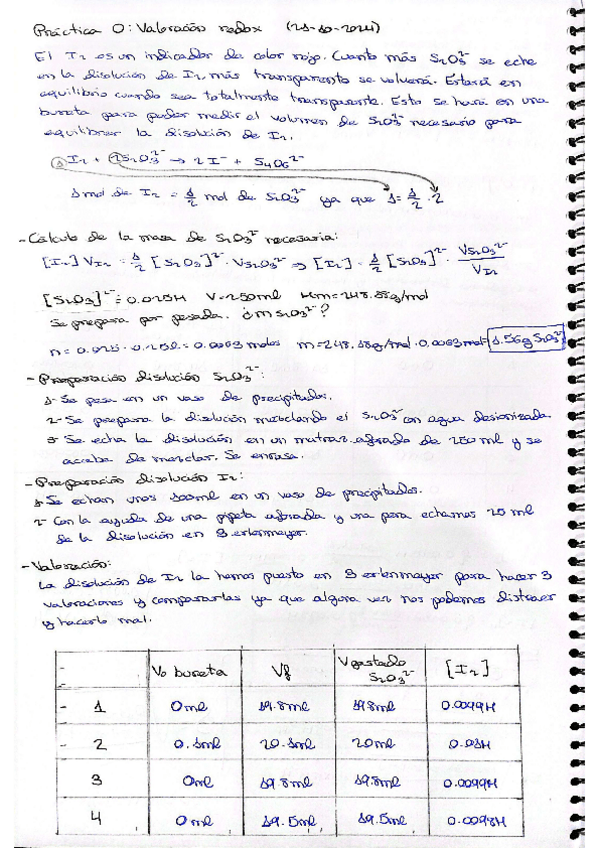 Práctica 0: Valoración redox (21-10-2024)
El I₂ es un indicador de color rojo. Cuanto más S₂O₃²⁻ se eche
en la disolución de I₂ más transparente se volverá. Estará en
equilibrio cuando sea totalmente transparente. Esto se hará en una
bureta para poder medir el volumen de S₂O₃²⁻ necesario para
equilibrar la disolución de I₂.
1 I₂ + 2S₂O₃²⁻ → 2I⁻ + S₄O₆²⁻
1 mol de I₂ = 1/2 mol de S₂O₃²⁻ ya que 1 = 1/2 · 2
- Cálculo de la masa de S₂O₃²⁻ necesaria:
[I₂] V I₂ = 1/2 [S₂O₃]²⁻ · V S₂O₃²⁻ ⇒ [I₂] = 1/2 [S₂O₃]²⁻ · V S₂O₃²⁻ / V I₂
[S₂O₃]²⁻ = 0.025M V = 250ml Mm = 248.18g/mol
Se prepara por pesada. ¿m S₂O₃²⁻?
n = 0.025 · 0.250l = 0.0063 moles m = 248.18g/mol · 0.0063mol = 1.56g S₂O₃²⁻
- Preparación disolución S₂O₃²⁻:
1- Se pesa en un vaso de precipitados.
2- Se prepara la disolución mezclando el S₂O₃²⁻ con agua desionizada.
3- Se echa la disolución en un matraz aforado de 250 ml y se
acaba de mezclar. Se enrasa.
- Preparación disolución I₂:
1- Se echan unos 100ml en un vaso de precipitados.
2- Con la ayuda de una pipeta aforada y una pera echamos 25 ml
de la disolución en 3 erlenmeyer.
- Valoración:
La disolución de I₂ la hemos puesto en 3 erlenmeyer para hacer 3
valoraciones y compararlas ya que alguna vez nos podemos distraer
y hacerlo mal.
V₀ bureta Vf Vgastado S₂O₃²⁻ [I₂]
- 1 0ml 19.8ml 19.8ml 0.0099M
- 2 0.1ml 20.1ml 20ml 0.01M
3 0ml 19.8ml 19.8ml 0.0099M
4 0ml 19.5ml 19.5ml 0.0098M